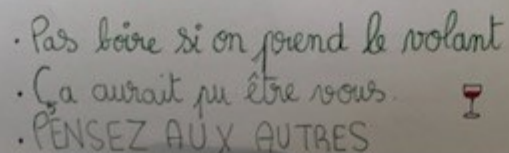 · Pas boire si on prend le volant
· Ça aurait pu être vous.
· PENSEZ AUX AUTRES